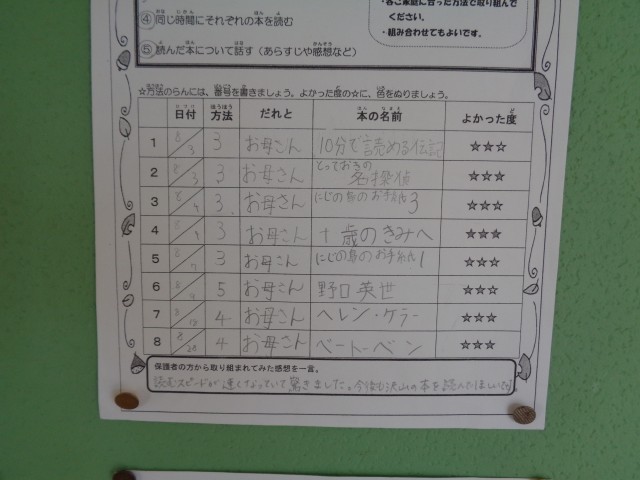 ④同じ時間にそれぞれの本を読む
⑤読んだ本について話す(あらすじや感想など)
・各ご家庭に合った方法で取り組んで
ください。
・組み合わせてもよいです。
☆方法のらんには、番号を書きましょう。よかった度の☆に、色をぬりましょう。
日付 方法 だれと 本の名前 よかった度
1 8/3 3 お母さん 10分で読める伝記 ☆☆☆
2 8/3 3 お母さん とっておきの名探偵 ☆☆☆
3 8/4 3 お母さん にじの鳥のお手紙3 ☆☆☆
4 3 お母さん 十歳のきみへ ☆☆☆
5 8/7 3 お母さん にじの鳥のお手紙1 ☆☆☆
6 5 お母さん 野口英世 ☆☆☆
7 4 お母さん ヘレン・ケラー ☆☆☆
8 8/20 4 お母さん ベートーベン ☆☆☆
保護者の方から取り組まれてみた感想を一言。
読むスピードが速くなっていて驚きました。今後も沢山の本を読んでほしいです。